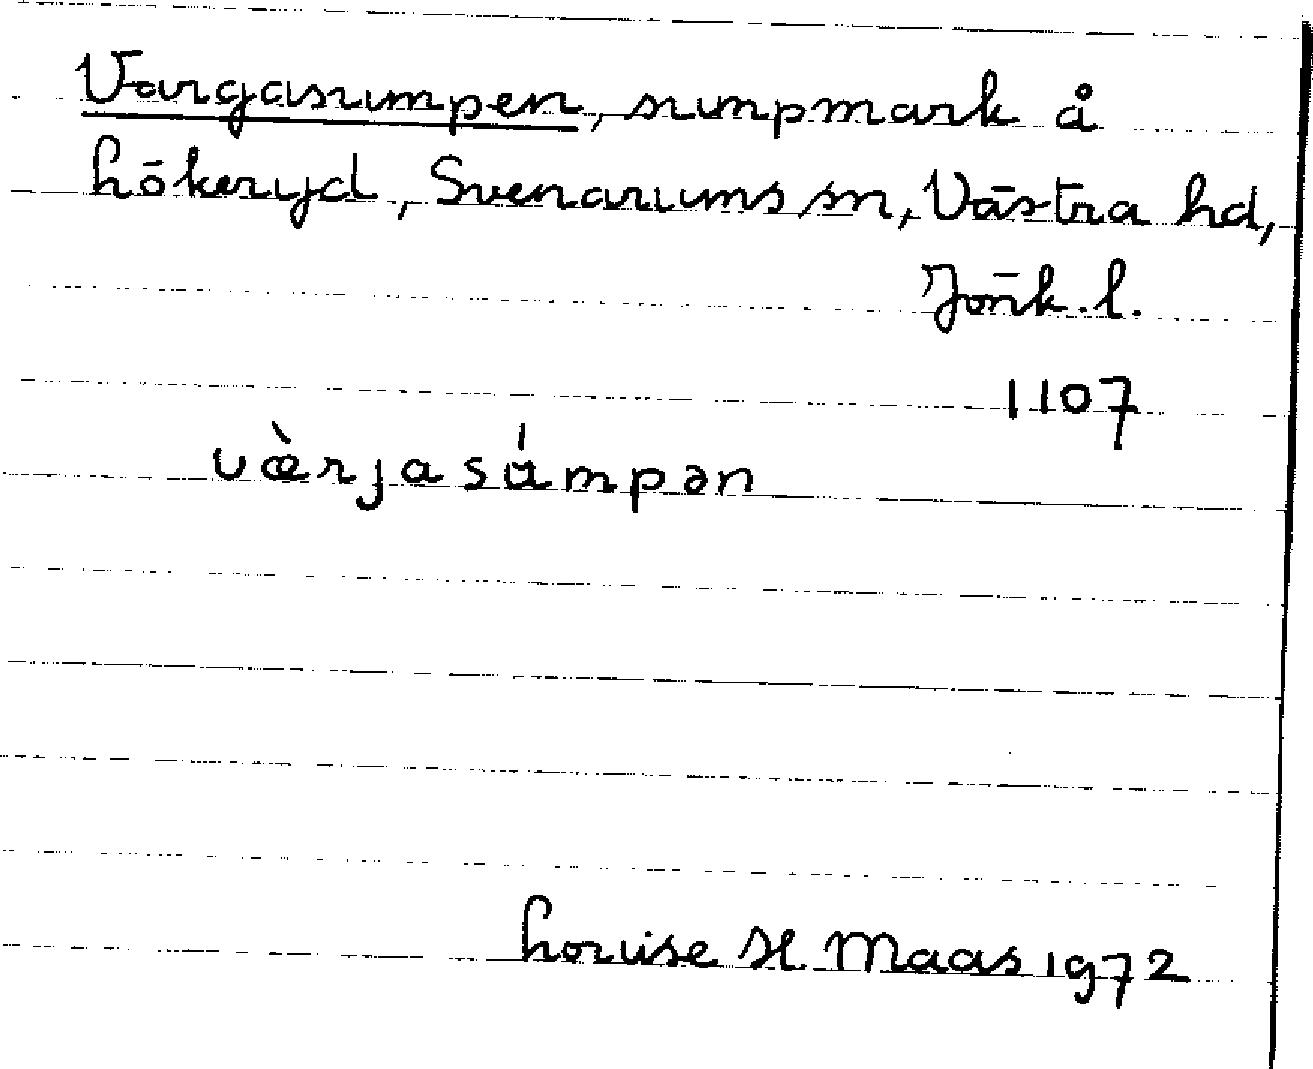 Vargasumpen, sumpmark å
Lökeryd, Svenarums sn, Västra hd,
Jönk. l.
1107
værjasúmpən
Louise H Maas 1972